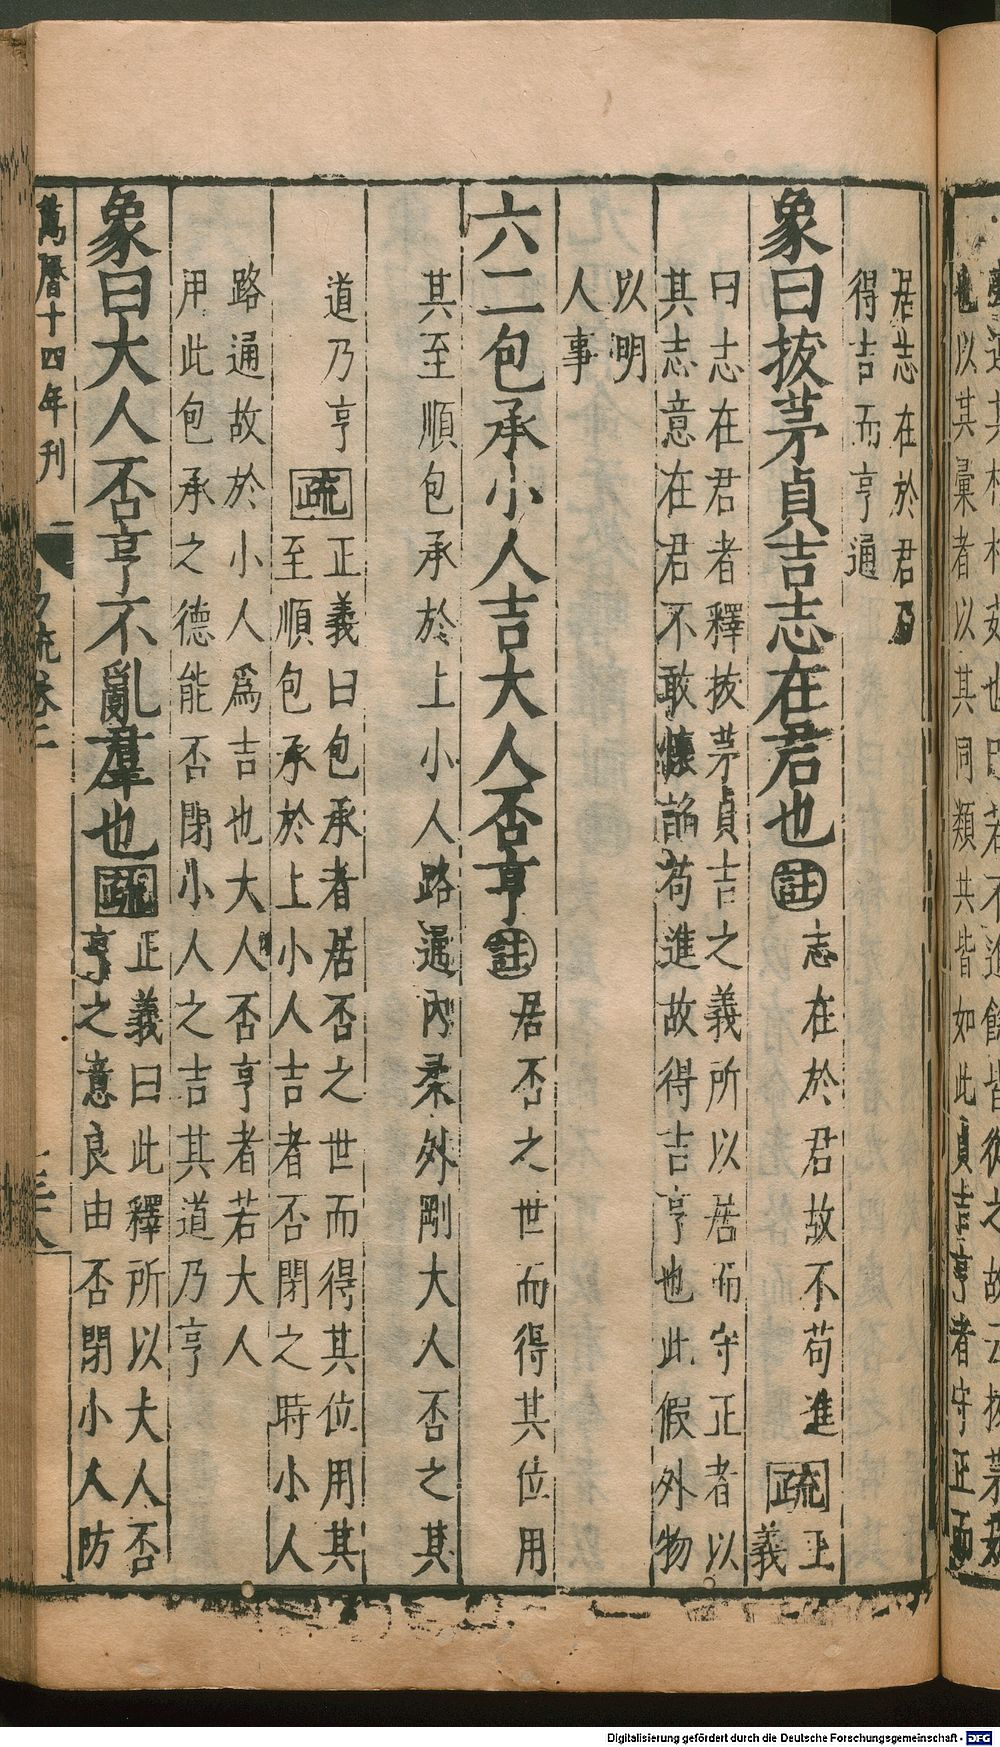 居志在於君
得吉而亨通
象曰拔茅貞吉志在君也
註
志在於君故不苟進
疏
正
義
曰志在君者釋拔茅貞吉之義所以居而守正者以
其志意在君不敢懷諂苟進故得吉亨也此假外物
以明
人事
六二包承小人吉大人否亨
註
居否之世而得其位用
其至順包承於上小人路通內柔外剛大人否之其
道乃亨
疏
正義曰包承者居否之世而得其位用其
至順包承於上小人吉者否閉之時小人
路通故於小人爲吉也大人否亨者若大人
用此包承之德能否閉小人之吉其道乃亨
象曰大人否亨不亂羣也
疏
正義曰此釋所以大人否
亨之意良由否閉小人防
萬曆十四年刊
易疏卷二
三十八
也以其彙者以其同類共皆如此貞吉亨者守正而
Digitalisierung gefördert durch die Deutsche Forschungsgemeinschaft - DFG